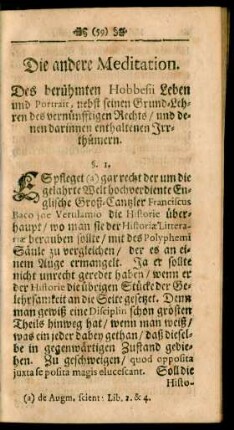 (59)
Die andere Meditation.
Des berühmten Hobbesii Leben
und Portrait, nebst seinen Grund-Leh-
ren des vernünfftigen Rechts / und de-
nen darinnen enthaltenen Irr-
thümern.
§. 1.
ES pfleget (a) gar recht der um die
gelahrte Welt hochverdiente En-
glische Groß-Cantzler Franciscus
Baco de Verulamio die Historie über-
haupt / wo man sie der Historiæ Littera-
riæ berauben sollte / mit des Polyphemi
Säule zu vergleichen / der es an ei-
nem Auge ermangelt. Ja er sollte
nicht unrecht geredet haben / wenn er
der Historie die übrigen Stücke der Ge-
lehrsamkeit an die Seite gesetzet. Denn
man gewiß eine Disciplin schon grösten
Theils hinweg hat / wenn man weiß /
was ein jeder dabey gethan / daß diesel-
be in gegenwärtigen Zustand gedie-
hen. Zu geschweigen / quod opposita
juxta se posita magis elucescant. Soll die
Histo-
(a) de Augm. scient: Lib. 2. & 4.